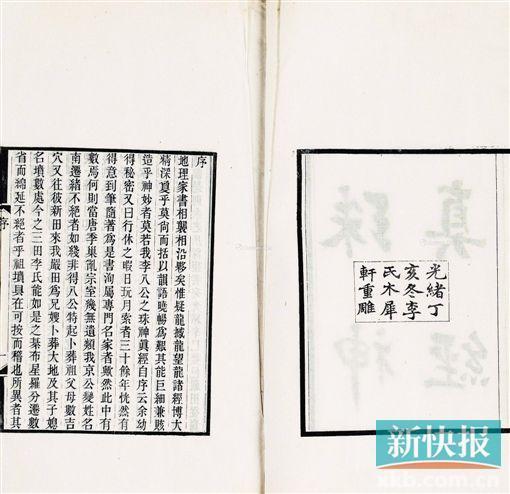 珠神
真經
光緒丁
亥冬李
氏木犀
軒重雕
序
地理家書相襲相沿夥矣惟疑龍撼龍望龍諸經博大
精深敻乎莫尚而括以韻語曉暢爲艱其能巨細兼賅
造乎神妙者莫若我李八公之珠神眞經自序云余幼
得秘密又曰行休之暇日玩月索者三十餘年恍然有
得意到筆隨著爲是書洵屬專門名家者歟然此中有
數焉何則當唐季巢亂宗室殘無遺類我京公變姓名
南遷緒不絕者如綫非得八公特起卜葬祖父母數吉
穴又往彼新田來我嚴田爲兄嫂卜葬大地及其子媳
名墳數處今之三田李氏能如是之棊布星羅分遷數
省而綿延不絕者乎祖墳具在可按而稽也所異者其
序
一
新快报
xkb.com.cn